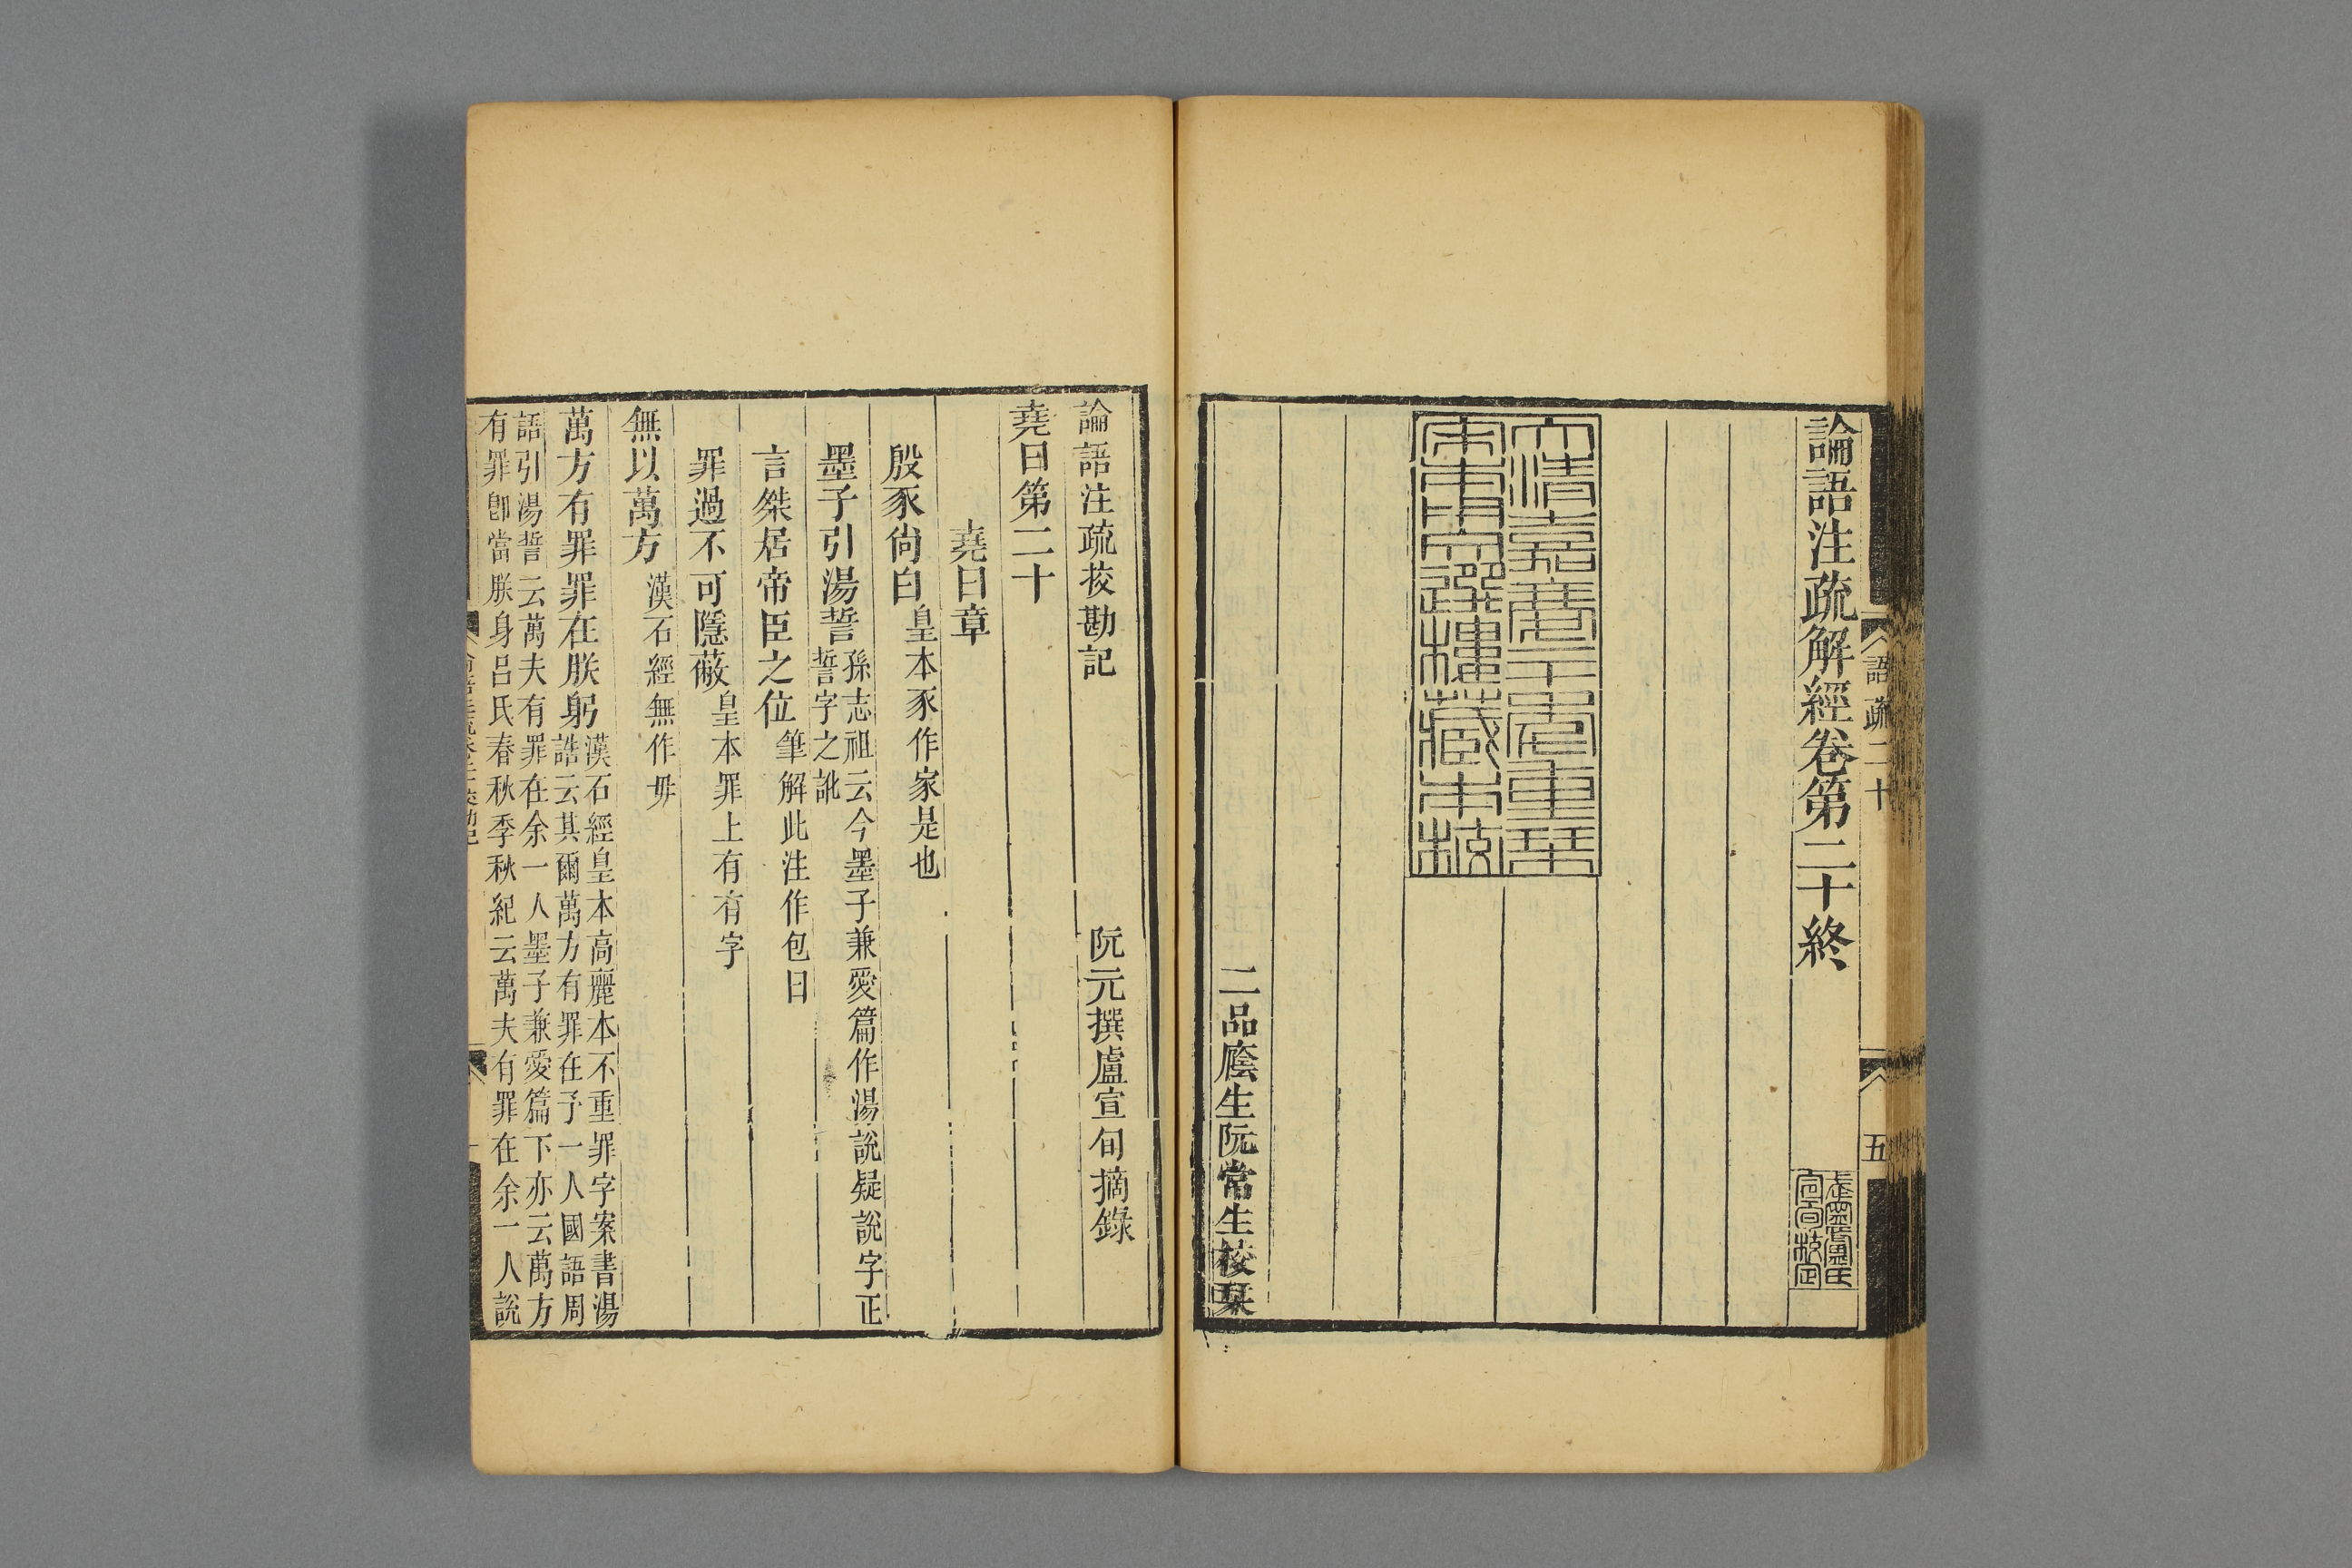 語疏二十　五
論語注疏解經卷第二十終
武寧盧氏
宣旬校定
大清嘉慶二十年重栞
宋本用文選樓藏本校
二品廕生阮常生校栞
論語注疏挍勘記　阮元撰盧宣旬摘錄
堯曰第二十
堯曰章
殷豕尙白　皇本豕作家是也
墨子引湯誓　孫志祖云今墨子兼愛篇作湯說疑說字正
誓字之訛
言桀居帝臣之位　筆解此注作包曰
罪過不可隱蔽　皇本罪上有有字
無以萬方　漢石經無作毋
萬方有罪罪在朕躬　漢石經皇本高麗本不重罪字案書湯
誥云其爾萬方有罪在予一人國語周
語引湯誓云萬夫有罪在余一人墨子兼愛篇下亦云萬方
有罪卽當朕身呂氏春秋季秋紀云萬夫有罪在余一人說